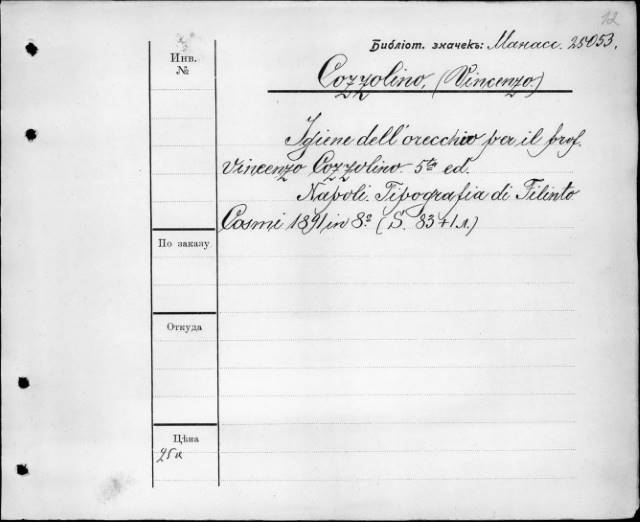 12
Библіот. значекъ: Манасс. 25053.
Инв.
№
Cozzolino. (Vincenzo.)
Igiene dell'orecchio per il prof.
Vincenzo Cozzolino. 5ta ed.
Napoli. Tipografia di Filinto
Cosmi 1891 in 8º (S. 83+1л.)
По заказу.
Откуда
Цѣна
25к